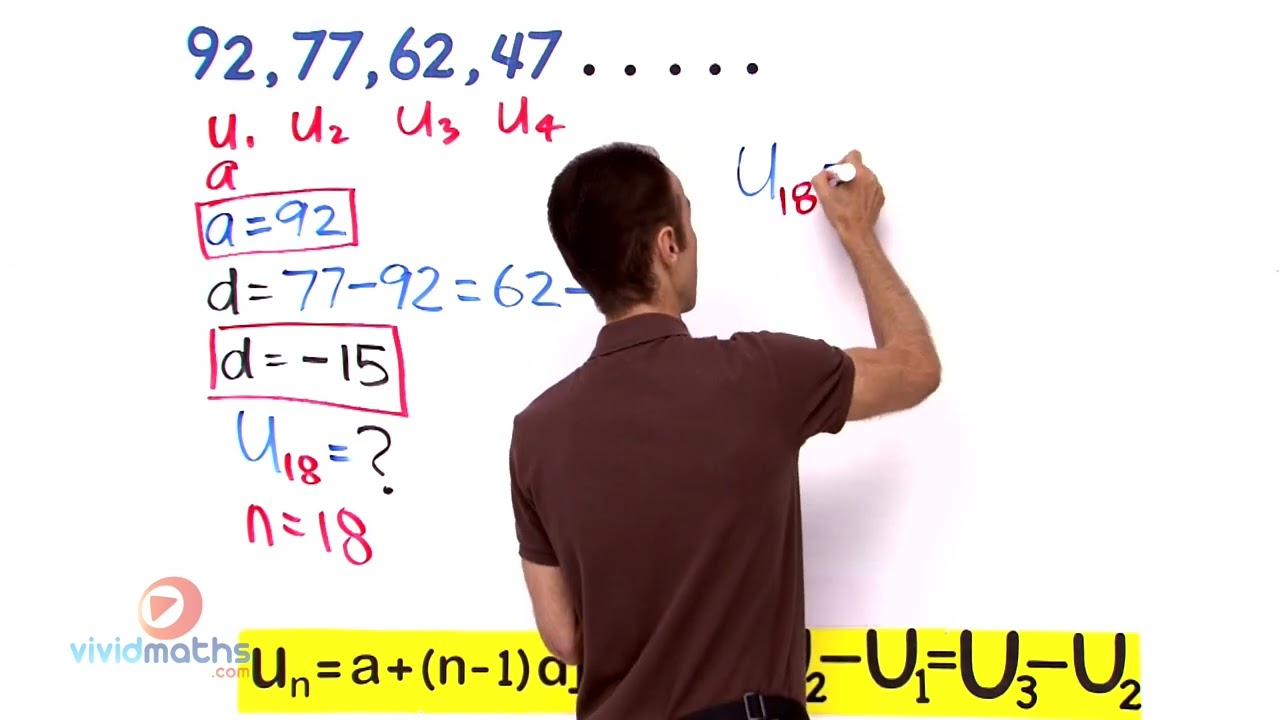 92, 77, 62, 47 . . . . .
u₁ u₂ u₃ u₄
a
a = 92
d = 77 - 92 = 62 -
d = -15
U₁₈ = ?
n = 18
U₁₈
vividmaths
.com
uₙ = a + (n - 1) d
₂ - U₁ = U₃ - U₂